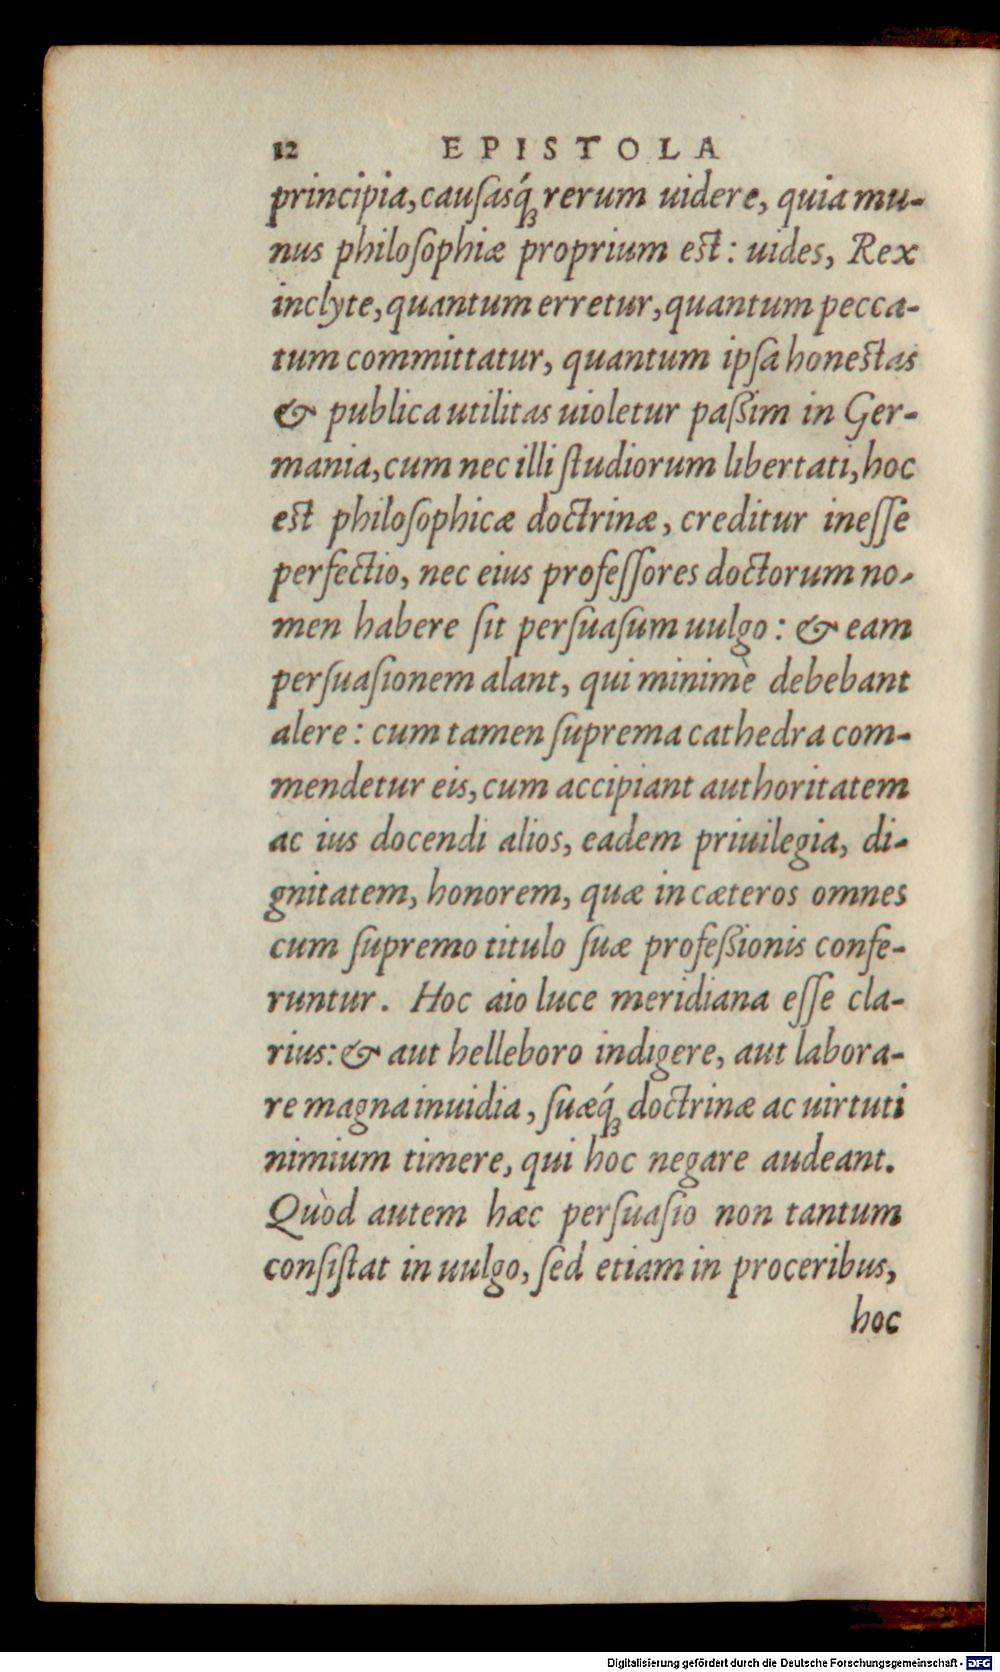 12 EPISTOLA
principia, cauſasq́; rerum uidere, quia mu-
nus philoſophiæ proprium est: uides, Rex
inclyte, quantum erretur, quantum pecca-
tum committatur, quantum ipſa honestas
& publica utilitas uioletur paßim in Ger-
mania, cum nec illi ſtudiorum libertati, hoc
est philoſophicæ doctrinæ, creditur ineſſe
perfectio, nec eius profeſſores doctorum no-
men habere ſit perſuaſum uulgo: & eam
perſuaſionem alant, qui minimè debebant
alere: cum tamen ſuprema cathedra com-
mendetur eis, cum accipiant authoritatem
ac ius docendi alios, eadem priuilegia, di-
gnitatem, honorem, quæ in cæteros omnes
cum ſupremo titulo ſuæ profeßionis confe-
runtur. Hoc aio luce meridiana eſſe cla-
rius: & aut helleboro indigere, aut labora-
re magna inuidia, ſuæq́; doctrinæ ac uirtuti
nimium timere, qui hoc negare audeant.
Quòd autem hæc perſuaſio non tantum
conſiſtat in uulgo, ſed etiam in proceribus,
hoc
Digitalisierung gefördert durch die Deutsche Forschungsgemeinschaft - DFG